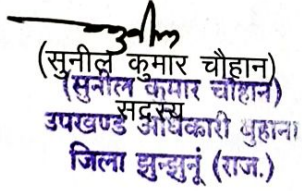 सुनील
(सुनील कुमार चौहान)
(सुनील कुमार चौहान)
सदस्य
उपखण्ड अधिकारी बुहाना
जिला झुन्झुनूं (राज.)